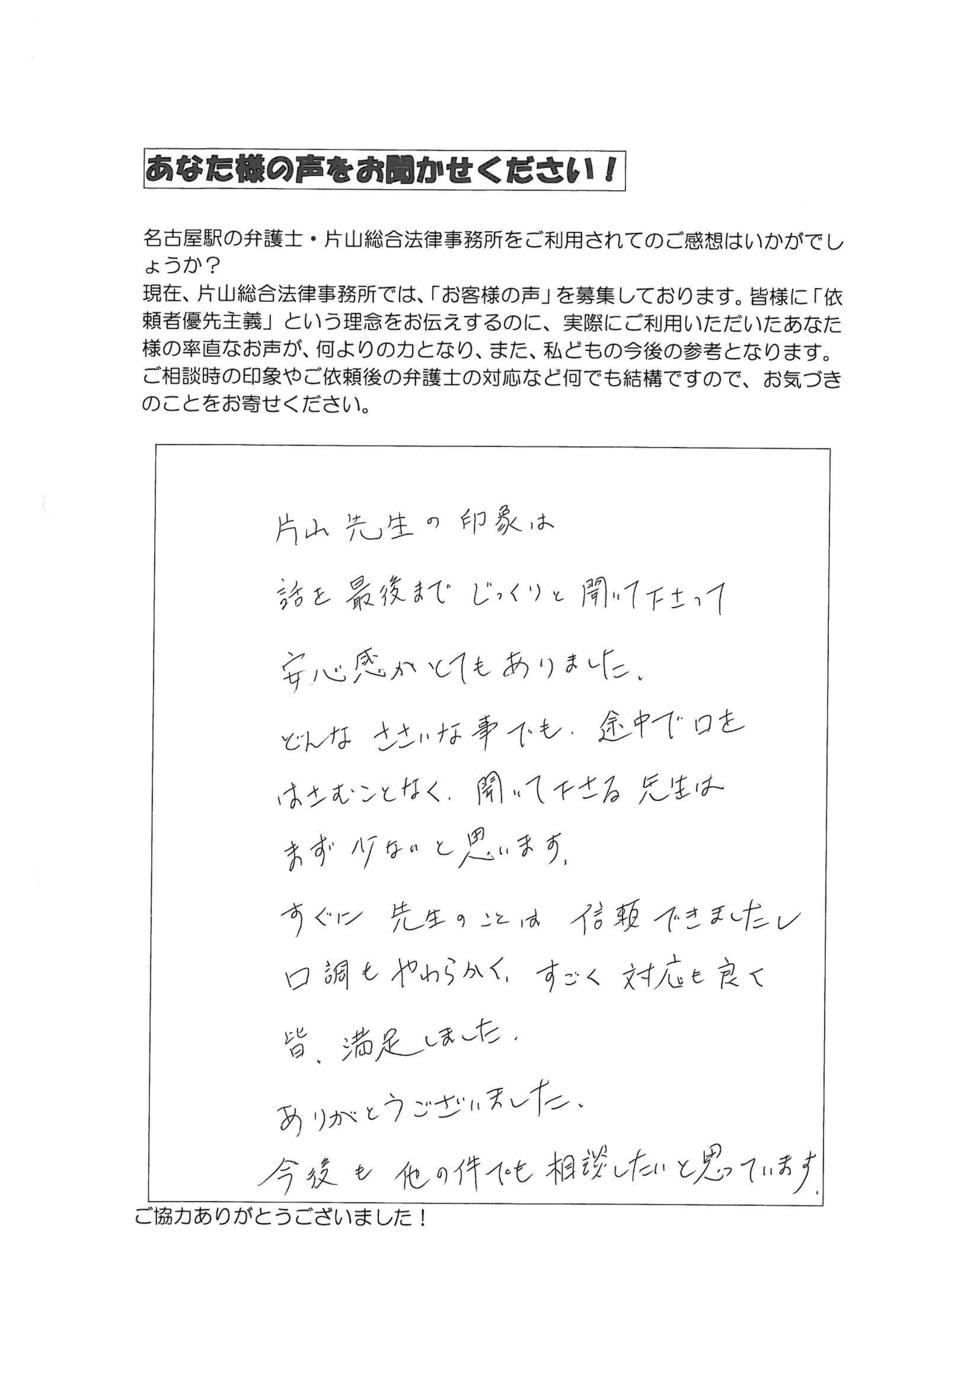 あなた様の声をお聞かせください！
名古屋駅の弁護士・片山総合法律事務所をご利用されてのご感想はいかがでし
ょうか？
現在、片山総合法律事務所では、「お客様の声」を募集しております。皆様に「依
頼者優先主義」という理念をお伝えするのに、実際にご利用いただいたあなた
様の率直なお声が、何よりの力となり、また、私どもの今後の参考となります。
ご相談時の印象やご依頼後の弁護士の対応など何でも結構ですので、お気づき
のことをお寄せください。
片山先生の印象は
話を最後までじっくりと聞いて下さって
安心感がとてもありました。
どんなささいな事でも、途中で口を
はさむことなく、聞いて下さる先生は
まず少ないと思います。
すぐに先生のことは信頼できましたし
口調もやわらかく、すごく対応も良くて
皆、満足しました。
ありがとうございました。
今後も他の件でも相談したいと思っています。
ご協力ありがとうございました！